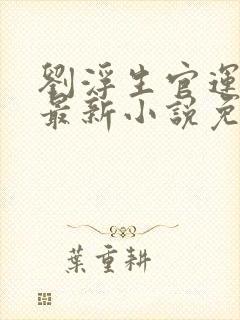 劉浮生官運
最新小說免
葉重耕